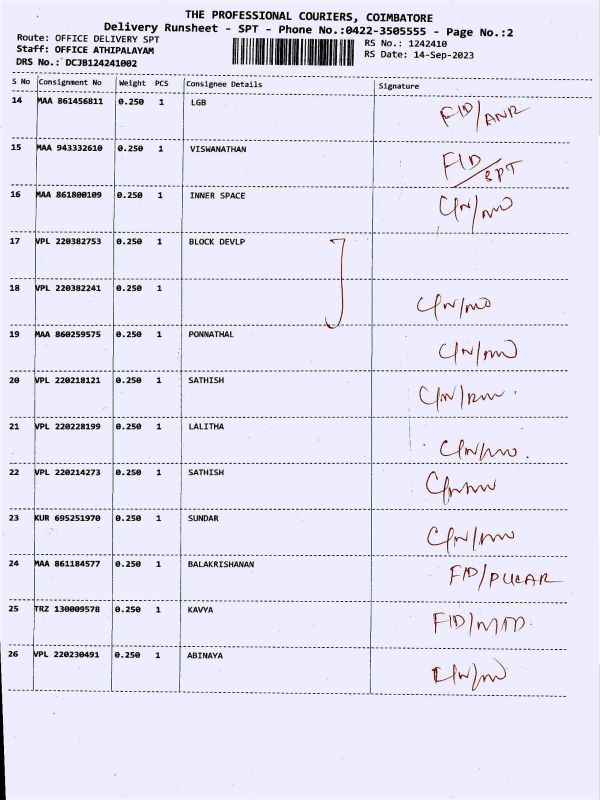 THE PROFESSIONAL COURIERS, COIMBATORE
Delivery Runsheet - SPT - Phone No.:0422-3505555 - Page No.:2
Route: OFFICE DELIVERY SPT RS No.: 1242410
Staff: OFFICE ATHIPALAYAM RS Date: 14-Sep-2023
DRS No.: DCJB124241002
S No Consignment No Weight PCS Consignee Details Signature
14 MAA 861456811 0.250 1 LGB FID/ANR
15 MAA 943332610 0.250 1 VISWANATHAN FID/SPT
16 MAA 861800109 0.250 1 INNER SPACE
17 VPL 220382753 0.250 1 BLOCK DEVLP
18 VPL 220382241 0.250 1
19 MAA 860259575 0.250 1 PONNATHAL
20 VPL 220218121 0.250 1 SATHISH
21 VPL 220228199 0.250 1 LALITHA
22 VPL 220214273 0.250 1 SATHISH
23 KUR 695251970 0.250 1 SUNDAR
24 MAA 861184577 0.250 1 BALAKRISHANAN FID/
25 TRZ 130009578 0.250 1 KAVYA FID/
26 VPL 220230491 0.250 1 ABINAYA